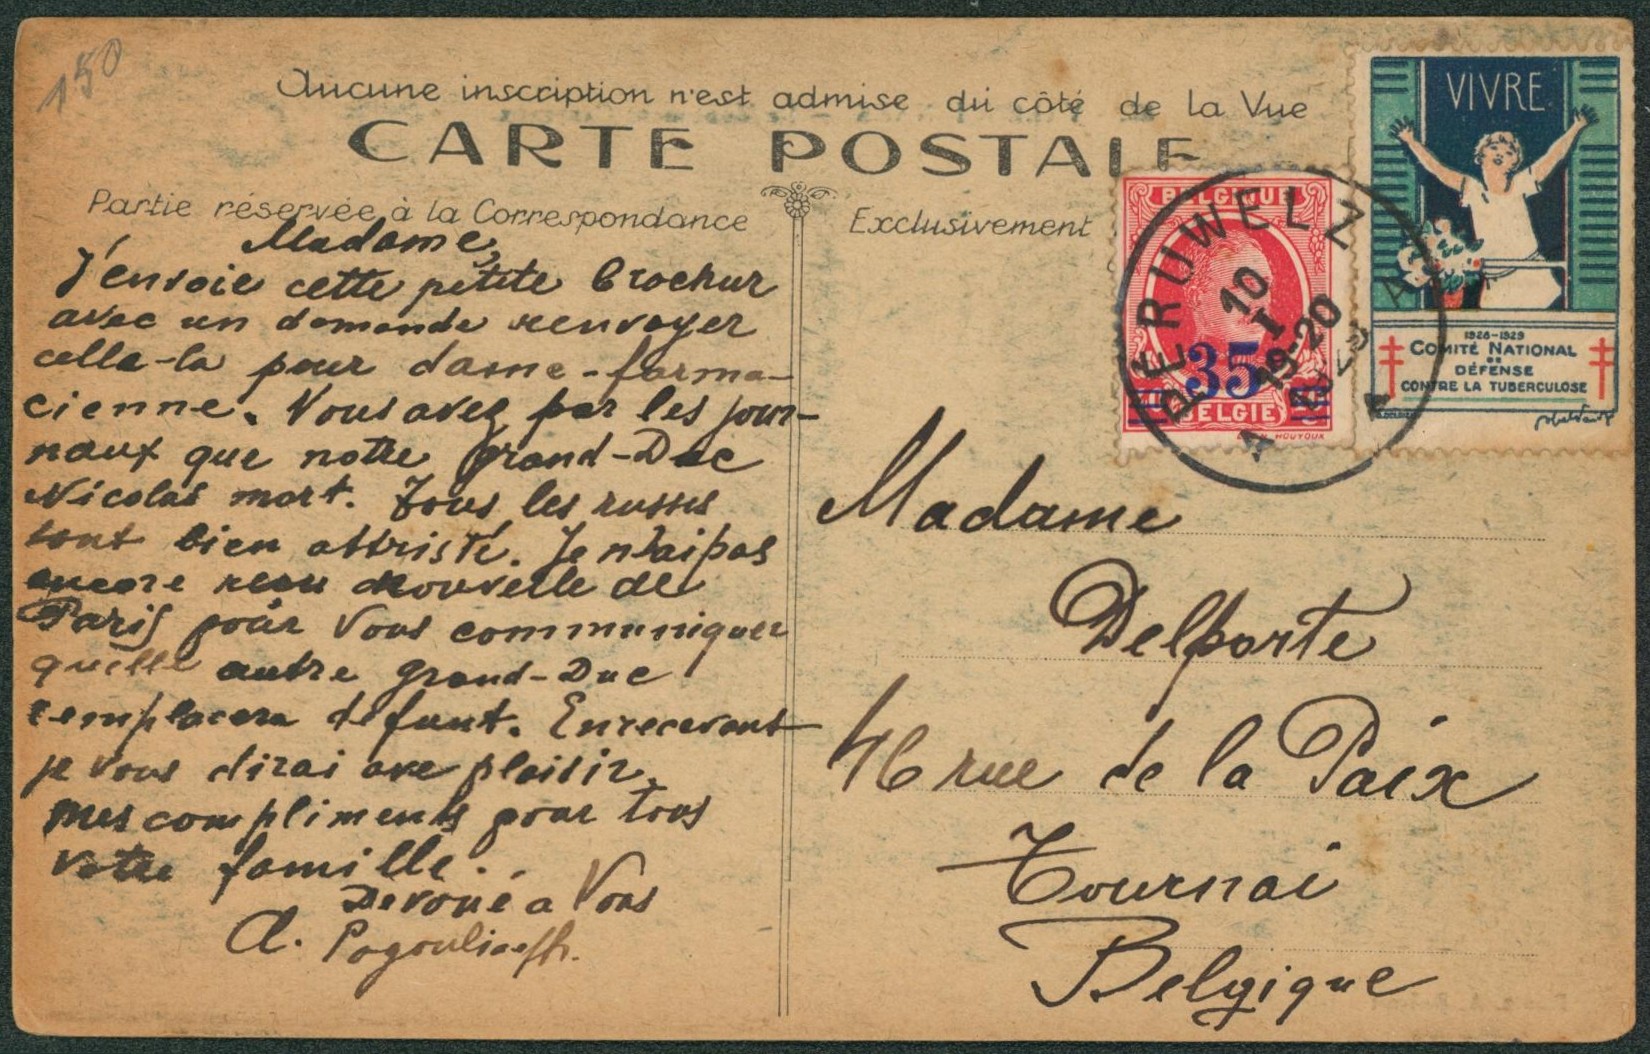 150
Aucune inscription n'est admise du côté de la Vue
CARTE POSTALE
Partie réservée à la Correspondance
Exclusivement
Madame,
J'envoie cette petite brochur
avec un demande renvoyer
celle-la pour dame-farma-
cienne. Vous avez par les jour-
naux que notre Grand-Duc
Nicolas mort. Tous les russes
sont bien attristé. Je n'ai pas
encore recu nouvelle de
Paris pour Vous communiquer
quelle autre grand-Duc
remplacera defunt. En recevant
je vous dirai ave plaisir.
mes compliments pour tous
votre famille.
Devoué a Vous
A. Pogouliaeff.
BELGIQUE
35
BELGIË
HOUYOUX
PERUWELZ
10
I
19-20
A A
VIVRE
1928-1929
COMITÉ NATIONAL
DE
DÉFENSE
CONTRE LA TUBERCULOSE
Madame
Delporte
46 rue de la Paix
Tournai
Belgique